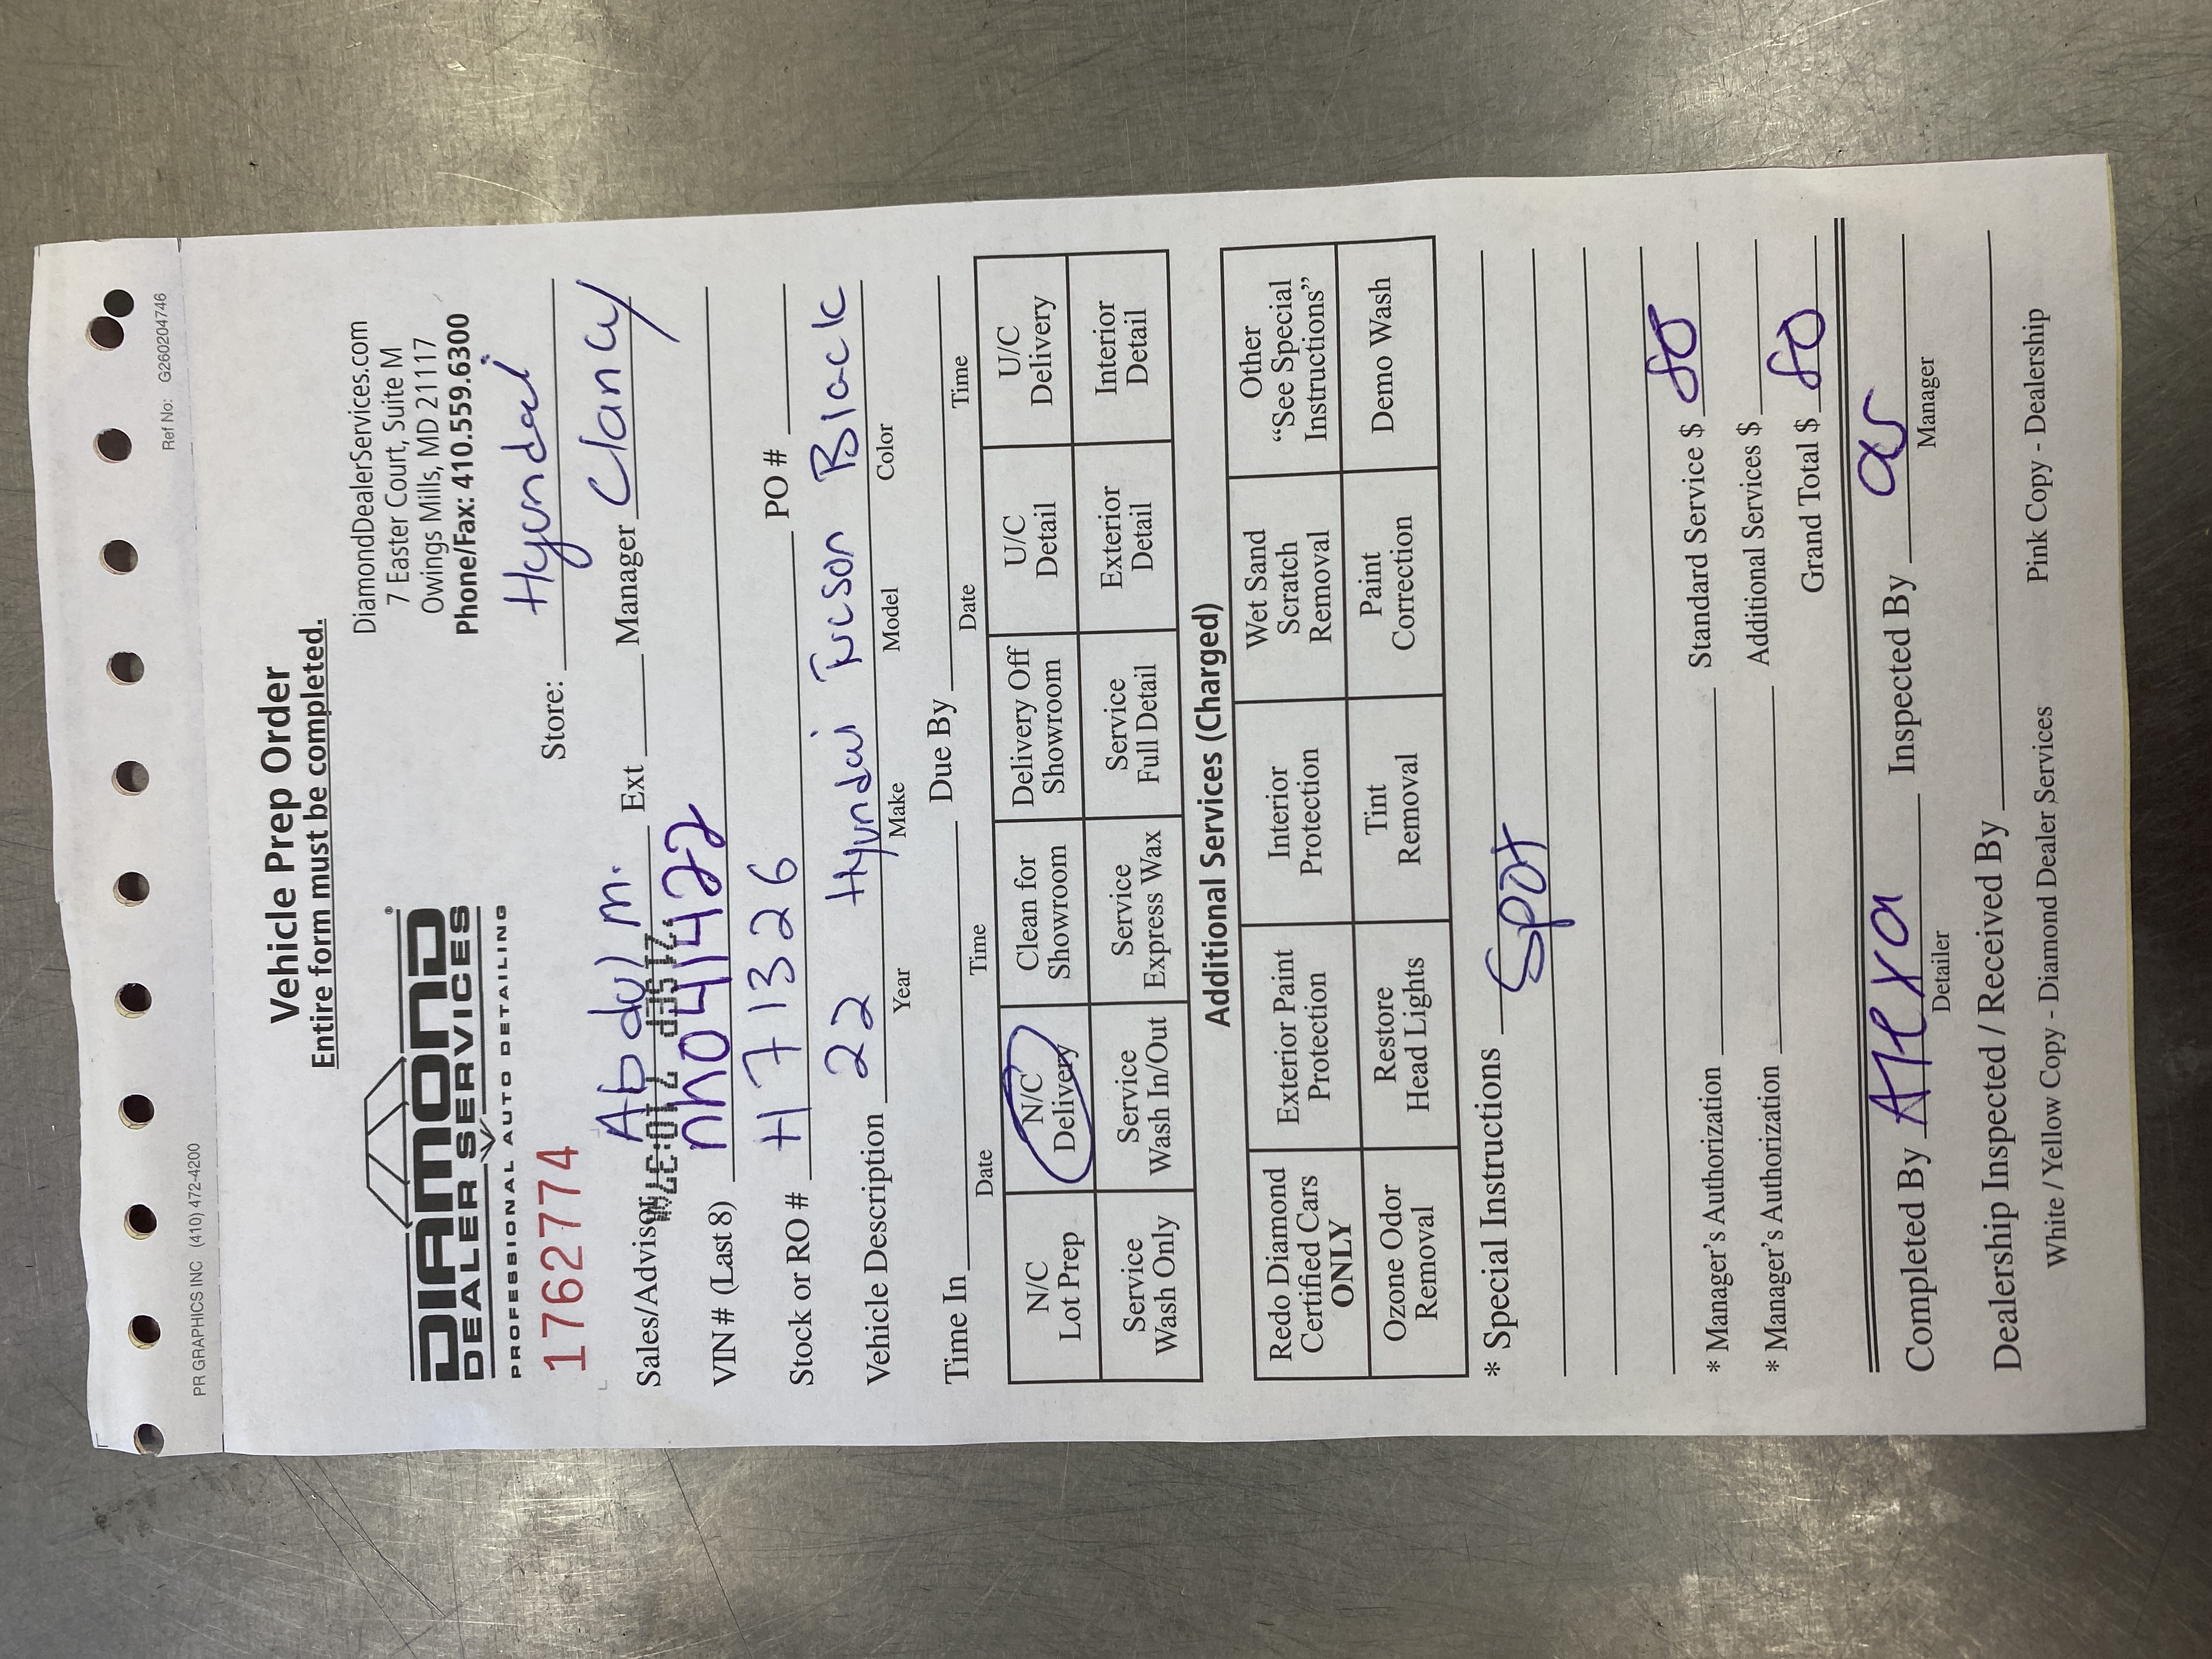 PR GRAPHICS INC (410) 472-4200 Ref No: G260204746
Vehicle Prep Order
Entire form must be completed.
DIAMOND®
DEALER SERVICES
PROFESSIONAL AUTO DETAILING
DiamondDealerServices.com
7 Easter Court, Suite M
Owings Mills, MD 21117
Phone/Fax: 410.559.6300
1762774
Store: Hyundai
Sales/Advisor Abdul m. Ext Manager Clancy
VIN# (Last 8) nh041422
Stock or RO # H71326 PO #
Vehicle Description 22 Hyundai Tucson Black
Year Make Model Color
Time In Due By
Date Time Date Time
N/C Lot Prep N/C Delivery Clean for Showroom Delivery Off Showroom U/C Detail U/C Delivery
Service Wash Only Service Wash In/Out Service Express Wax Service Full Detail Exterior Detail Interior Detail
Additional Services (Charged)
Redo Diamond Certified Cars ONLY Exterior Paint Protection Interior Protection Wet Sand Scratch Removal Other "See Special Instructions"
Ozone Odor Removal Restore Head Lights Tint Removal Paint Correction Demo Wash
* Special Instructions Spot
* Manager's Authorization Standard Service $ 80
* Manager's Authorization Additional Services $
Grand Total $ 80
Completed By Alexa Inspected By
Detailer Manager
Dealership Inspected / Received By
White / Yellow Copy - Diamond Dealer Services Pink Copy - Dealership